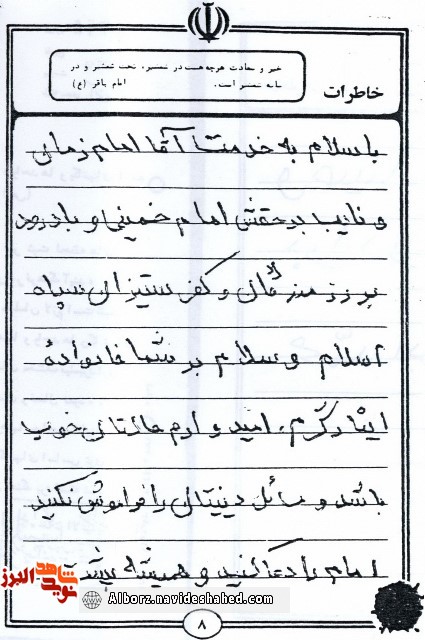 خیر و سعادت هرچه هست در شمشیر، تحت شمشیر و در
سایه شمشیر است. امام باقر (ع)
خاطرات
با سلام به خدمت آقا امام زمان
و نایب برحقش امام خمینی و با درود
بر رزمندگان و کفر ستیزان سپاه
اسلام و سلام بر شما خانواده
ایثارگرم، امیدوارم حالتان خوب
باشد و مسائل دینیتان را فراموش نکنید
امام را دعا کنید و همیشه
شاهد
نوید
البرز
Alborz.navideshahed.com
۸